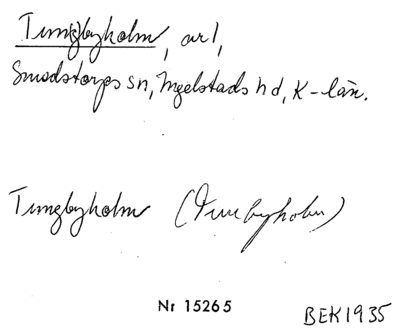 Tungbyholm, arl,
Smedstorps sn, Ingelstads hd, K-län.
Tungbyholm (Tumbyholm)
Nr 15265
BEK1935